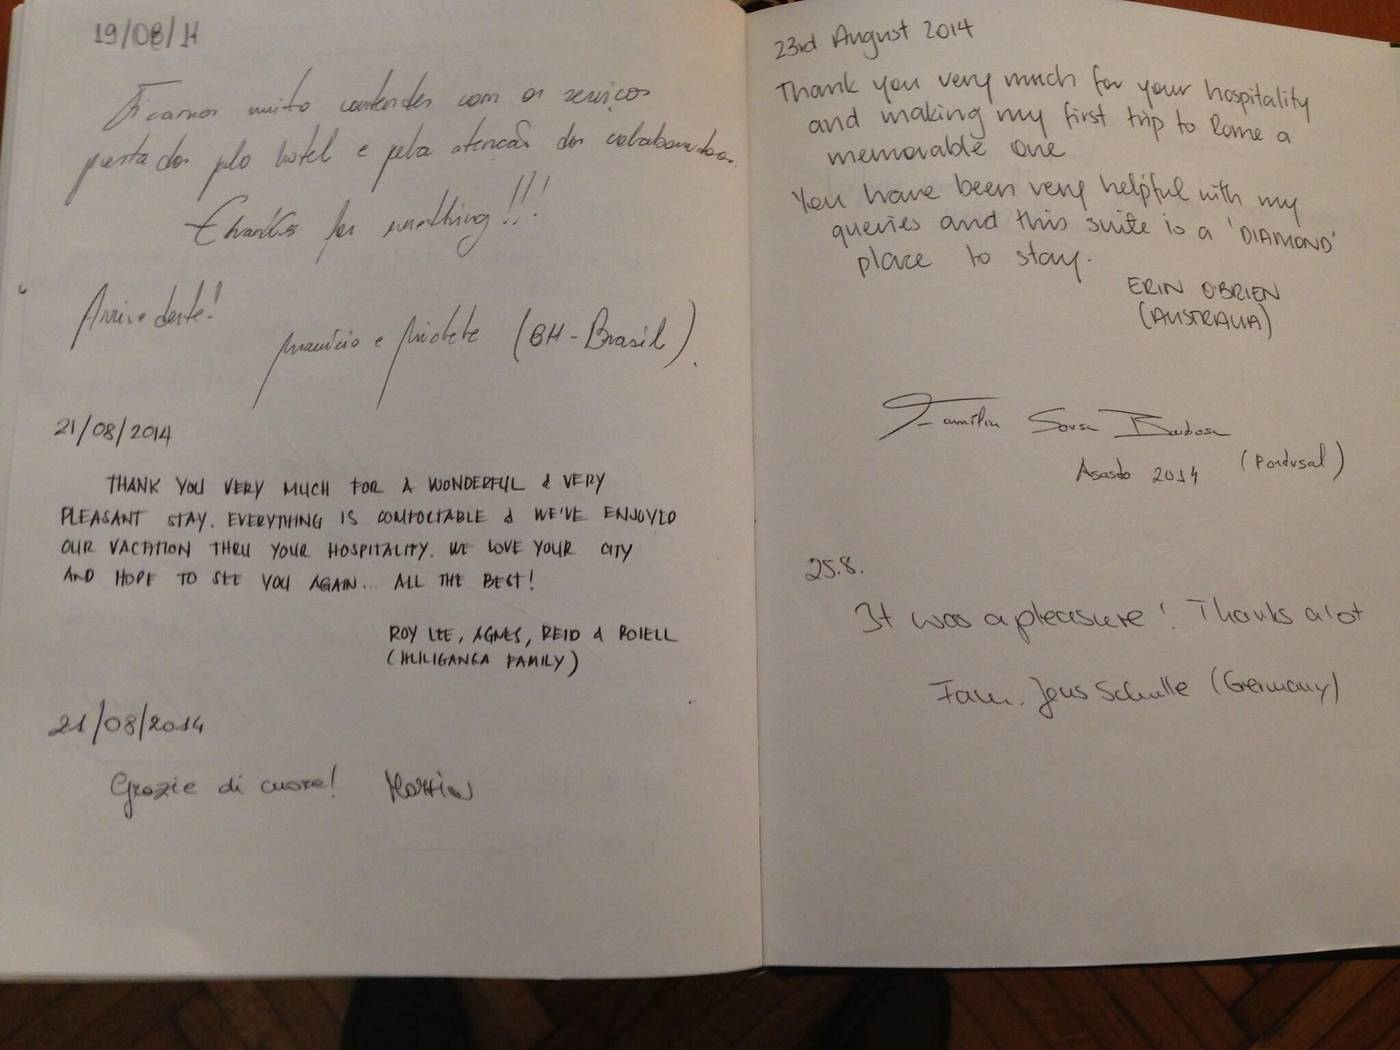 19/08/14
Ficamos muito contentes com os serviços
prestados pelo hotel e pela atenção dos colaboradores.
Thanks for everything!!!
Arrivederte!
Mauricio e (BH-Brasil).
21/08/2014
THANK YOU VERY MUCH FOR A WONDERFUL & VERY
PLEASANT STAY. EVERYTHING IS COMFORTABLE & WE'VE ENJOYED
OUR VACATION THRU YOUR HOSPITALITY. WE LOVE YOUR CITY
AND HOPE TO SEE YOU AGAIN... ALL THE BEST!
ROY LEE, AGNES, REID &
(HULIGANGA FAMILY)
21/08/2014
Grazie di cuore!
23rd August 2014
Thank you very much for your hospitality
and making my first trip to Rome a
memorable one
You have been very helpful with my
queries and this suite is a 'DIAMOND'
place to stay.
ERIN O'BRIEN
(AUSTRALIA)
Família Sousa Barbosa
Agosto 2014 (Portugal)
25.8.
It was a pleasure! Thanks a lot
Fam. Jens Schulle (Germany)